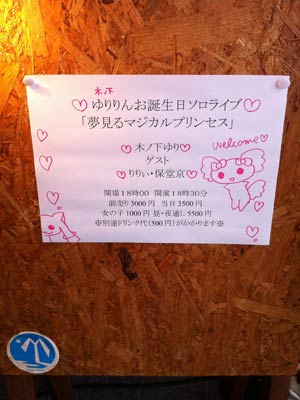 木下
ゆりりんお誕生日ソロライブ
「夢見るマジカルプリンセス」
welcome
木ノ下ゆり
ゲスト
りりぃ・保堂京
開場18時00 開演18時30分
前売り3000円 当日3500円
女の子1000円 昼・夜通し5500円
※別途ドリンク代(500円)がかかります※